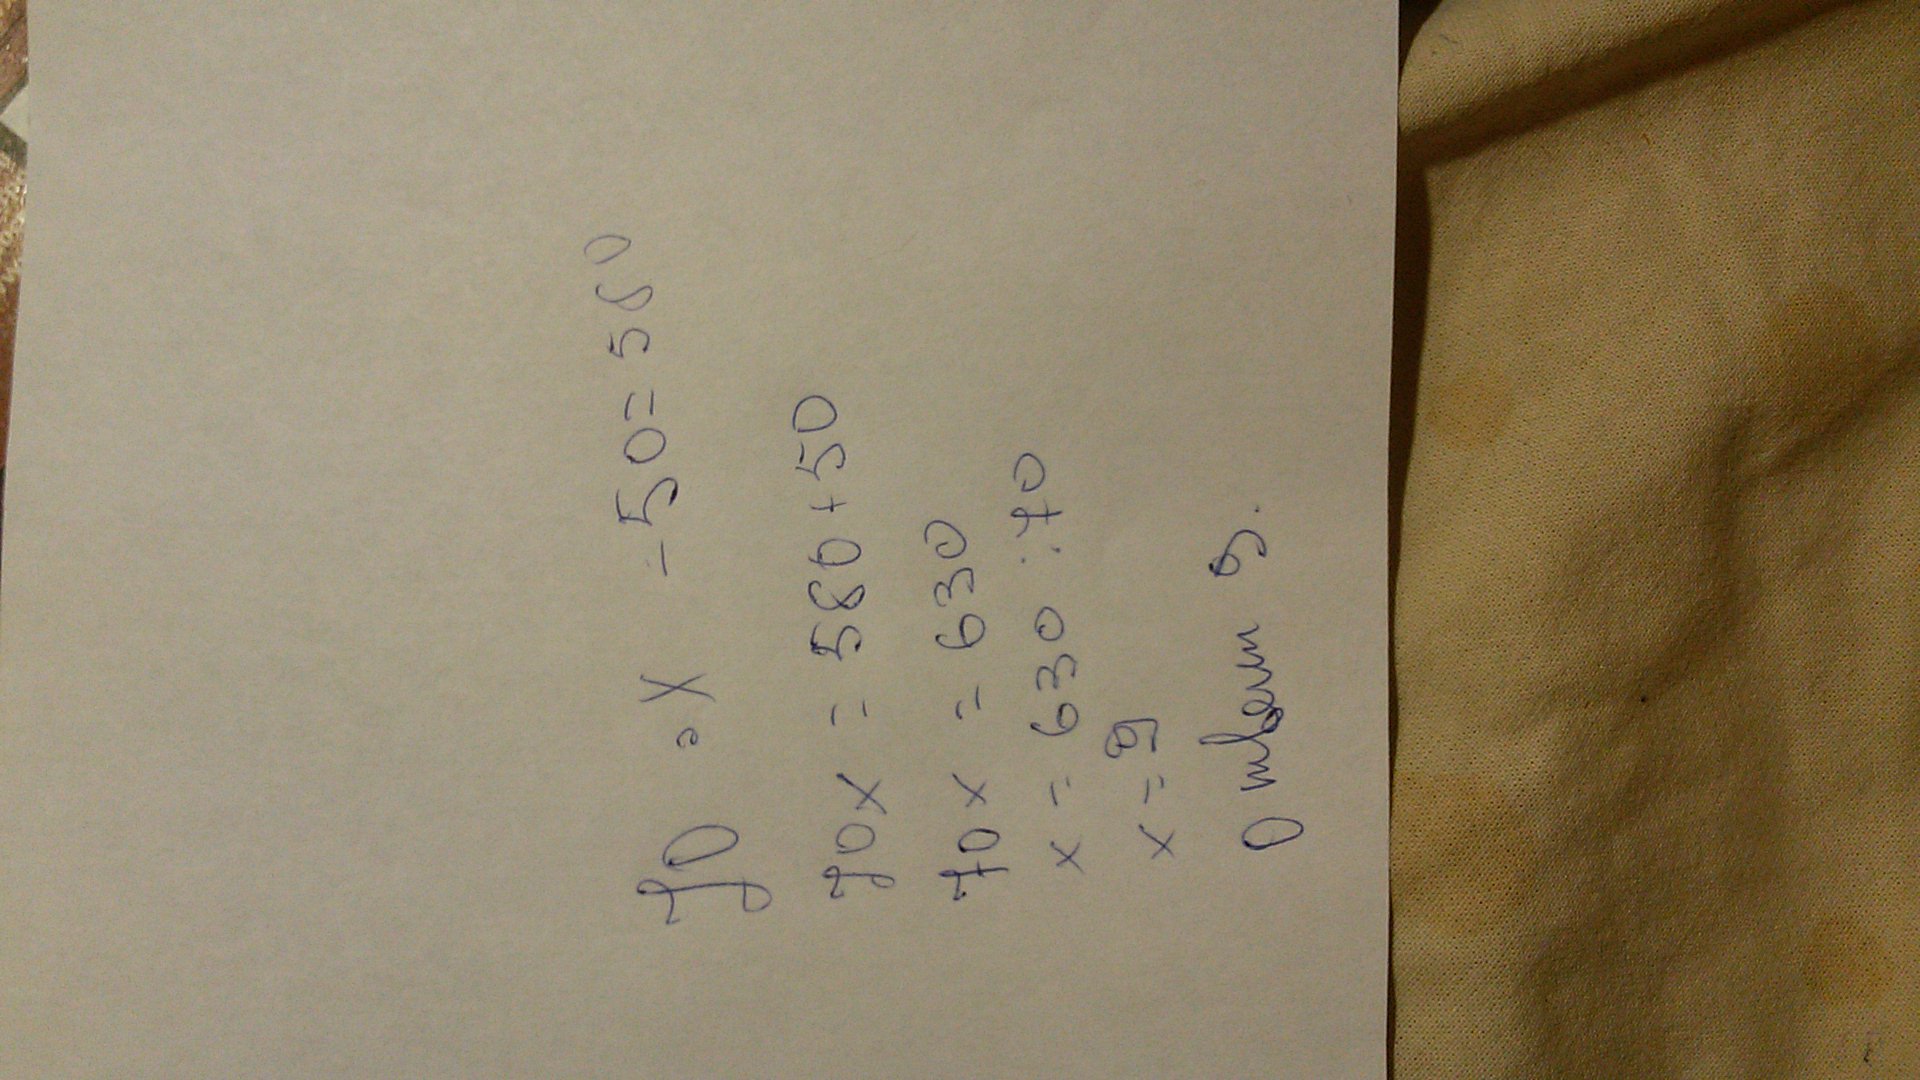 70 · x - 50 = 580
70x = 580 + 50
70x = 630
x = 630 : 70
x = 9
Ответ 9.